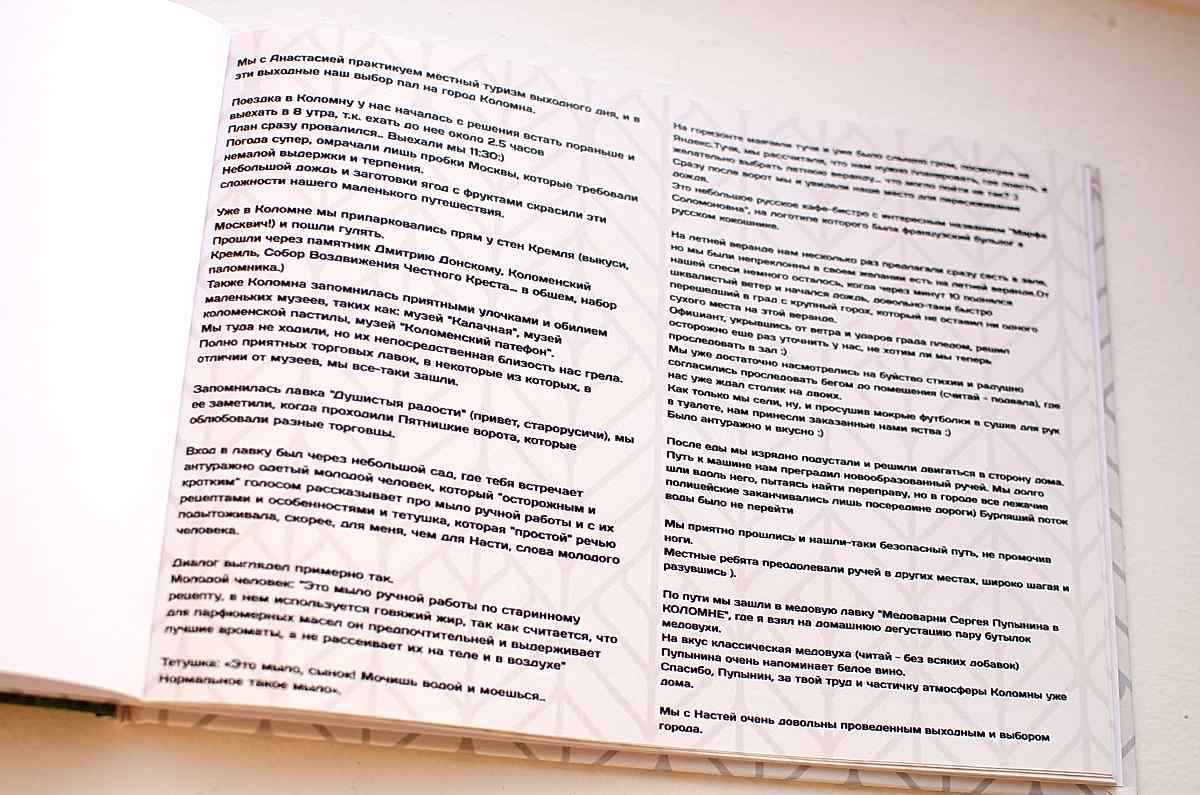 Мы с Анастасией практикуем местный туризм выходного дня, и в
эти выходные наш выбор пал на город Коломна.
Поездка в Коломну у нас началась с решения встать пораньше и
выехать в 8 утра, т.к. ехать до нее около 2.5 часов
План сразу провалился.. Выехали мы 11:30:)
Погода супер, омрачали лишь пробки Москвы, которые требовали
немалой выдержки и терпения.
Небольшой дождь и заготовки ягод с фруктами скрасили эти
сложности нашего маленького путешествия.
Уже в Коломне мы припарковались прям у стен Кремля (выкуси,
Москвич!) и пошли гулять.
Прошли через памятник Дмитрию Донскому, Коломенский
Кремль, Собор Воздвижения Честного Креста... в общем, набор
паломника.)
Также Коломна запомнилась приятными улочками и обилием
маленьких музеев, таких как: музей "Калачная", музей
коломенской пастилы, музей "Коломенский патефон".
Мы туда не ходили, но их непосредственная близость нас грела.
Полно приятных торговых лавок, в некоторые из которых, в
отличии от музеев, мы все-таки зашли.
Запомнилась лавка "Душистыя радости" (привет, старорусичи), мы
ее заметили, когда проходили Пятницкие ворота, которые
облюбовали разные торговцы.
Вход в лавку был через небольшой сад, где тебя встречает
антуражно одетый молодой человек, который "осторожным и
кротким" голосом рассказывает про мыло ручной работы и с их
рецептами и особенностями и тетушка, которая "простой" речью
подытоживала, скорее, для меня, чем для Насти, слова молодого
человека.
Диалог выглядел примерно так.
Молодой человек: "Это мыло ручной работы по старинному
рецепту, в нем используется говяжий жир, так как считается, что
для парфюмерных масел он предпочтительней и выдерживает
лучшие ароматы, а не рассеивает их на теле и в воздухе"
Тетушка: «Это мыло, сынок! Мочишь водой и моешься..
Нормальное такое мыло».
На горизонте маячили тучи и уже было слышно гром, посмотрев на
Яндекс.Тучи, мы рассчитали, что нам нужно планировать, где поесть, и
желательно выбрать летнюю веранду... что могло пойти не так? :)
Сразу после ворот мы и увидели наше место для пережидания
дождя.
Это небольшое русское кафе-бистро с интересным названием "Марфа
Соломоновна", на логотипе которого была французский бульдог в
русском кокошнике.
На летней веранде нам несколько раз предлагали сразу сесть в зале,
но мы были непреклонны в своем желании есть на летней веранде.От
нашей спеси немного осталось, когда через минут 10 поднялся
шквалистый ветер и начался дождь, довольно-таки быстро
перешедший в град с крупный горох, который не оставил ни одного
сухого места на этой веранде.
Официант, укрывшись от ветра и ударов града пледом, решил
осторожно еще раз уточнить у нас, не хотим ли мы теперь
проследовать в зал :)
Мы уже достаточно насмотрелись на буйство стихии и радушно
согласились проследовать бегом до помещения (считай - подвала), где
нас уже ждал столик на двоих.
Как только мы сели, ну, и просушив мокрые футболки в сушке для рук
в туалете, нам принесли заказанные нами яства :)
Было антуражно и вкусно :)
После еды мы изрядно подустали и решили двигаться в сторону дома.
Путь к машине нам преградил новообразованный ручей. Мы долго
шли вдоль него, пытаясь найти переправу, но в городе все лежачие
полицейские заканчивались лишь посередине дороги) Бурлящий поток
воды было не перейти
Мы приятно прошлись и нашли-таки безопасный путь, не промочив
ноги.
Местные ребята преодолевали ручей в других местах, широко шагая и
разувшись ).
По пути мы зашли в медовую лавку "Медоварни Сергея Пупынина в
КОЛОМНЕ", где я взял на домашнюю дегустацию пару бутылок
медовухи.
На вкус классическая медовуха (читай - без всяких добавок)
Пупынина очень напоминает белое вино.
Спасибо, Пупынин, за твой труд и частичку атмосферы Коломны уже
дома.
Мы с Настей очень довольны проведенным выходным и выбором
города.